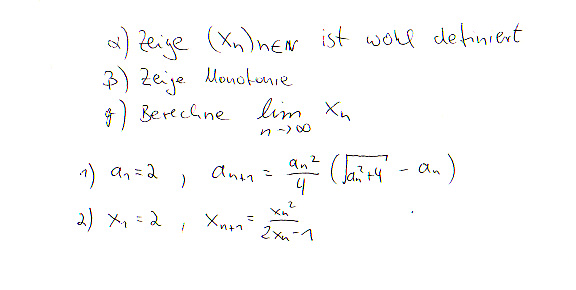 α) Zeige (xₙ)ₙ∈ℕ ist wohl definiert
β) Zeige Monotonie
γ) Berechne lim n→∞ xₙ
1) a₁ = 2 , aₙ₊₁ = aₙ²/4 (√(aₙ²+4) - aₙ)
2) x₁ = 2 , xₙ₊₁ = xₙ²/(2xₙ-1)